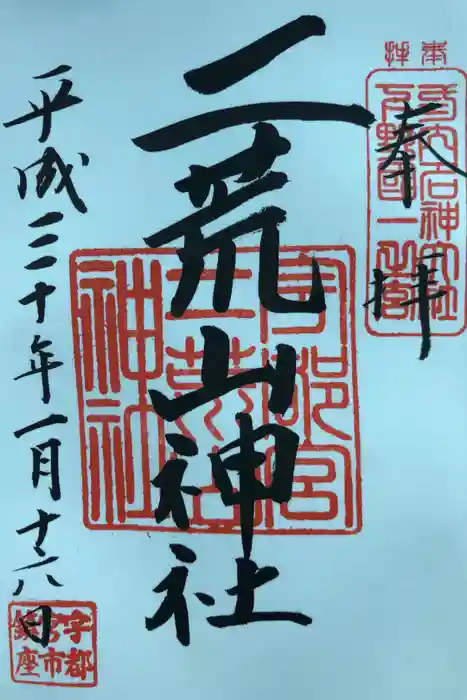 奉拝
奉拝
式内名神大社
下野國一之宮
二荒山神社
宇都宮
二荒山
神社
平成三十年一月十六日
宇都
宮市
鎮座